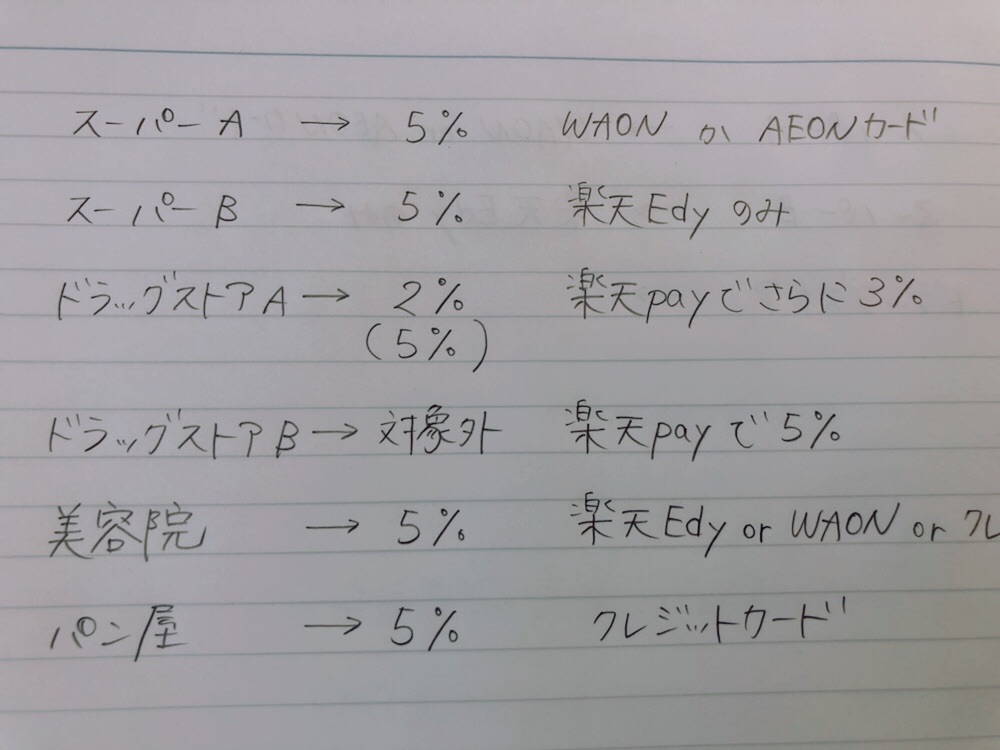 スーパーA → 5% WAON か AEONカード
スーパーB → 5% 楽天Edy のみ
ドラッグストアA → 2% 楽天payでさらに3%
(5%)
ドラッグストアB → 対象外 楽天payで5%
美容院 → 5% 楽天Edy or WAON or クレ
パン屋 → 5% クレジットカード